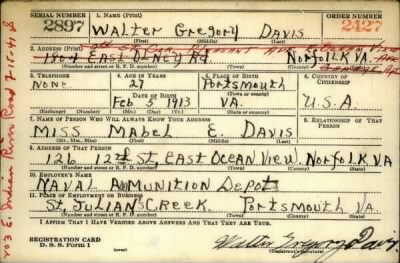 SERIAL NUMBER 1. NAME (Print) ORDER NUMBER
2897 Walter Gregory Davis 2427
(First) (Middle) (Last)
2. ADDRESS (Print)
East Olney Rd. Norfolk VA.
(Number and street or R. F. D. number) (Town) (County) (State)
3. TELEPHONE 4. AGE IN YEARS 5. PLACE OF BIRTH 6. COUNTRY OF CITIZENSHIP
None 27 Portsmouth
DATE OF BIRTH (Town or county)
Feb 5 1913 VA. U.S.A.
(Exchange) (Number) (Mo.) (Day) (Yr.) (State or country)
7. NAME OF PERSON WHO WILL ALWAYS KNOW YOUR ADDRESS 8. RELATIONSHIP OF THAT PERSON
Miss Mabel E. Davis
(Mr., Mrs., Miss) (First) (Middle) (Last)
9. ADDRESS OF THAT PERSON
126 12th St, East Ocean View, Norfolk VA
(Number and street or R. F. D. number) (Town) (County) (State)
10. EMPLOYER'S NAME
Naval Amunition Depot
11. PLACE OF EMPLOYMENT OR BUSINESS
St. Julian's Creek Portsmouth VA.
(Number and street or R. F. D. number) (Town) (County) (State)
I AFFIRM THAT I HAVE VERIFIED ABOVE ANSWERS AND THAT THEY ARE TRUE.
REGISTRATION CARD
D. S. S. Form 1
Walter Gregory Davis
(Registrant's signature)
703 E. Indian River Road 7-15-41